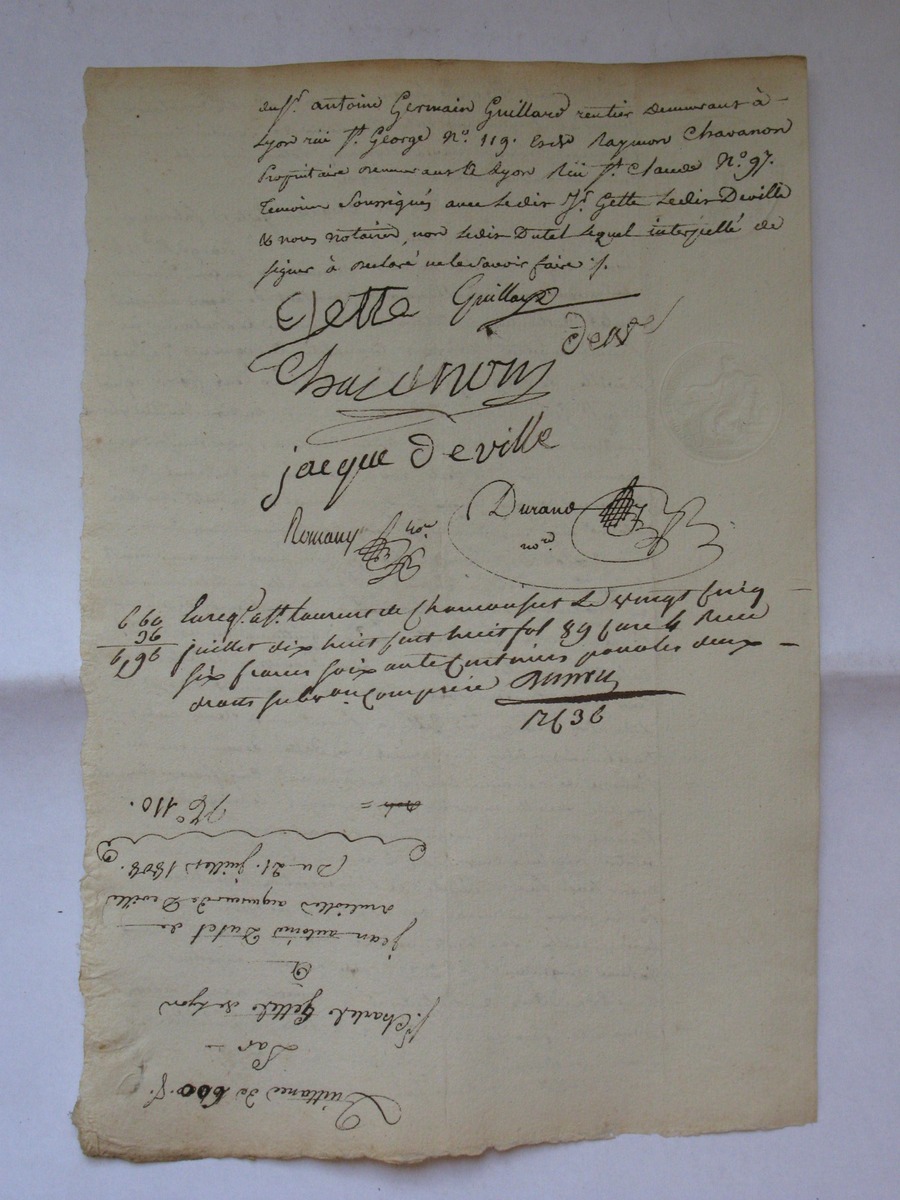 du sr. antoine Germain Guillard rentier Demeurant à
Lyon rüe st. George No. 119. Et de Raymon Chavanon
Propriétaire demeurant à Lyon Rüe st. Claude No. 97.
Temoins Soussignés avec Ledit Sr. Gette Ledit Deville
& nous notaires, non Ledit Dutel Lequel interpellé de
signer à declaré ne le savoir faire ./.
Gette Guillard
Chavanon
jacque Deville
Romany nore
Durand
nore
6 60
Enregé. à st. Laurent de Chamousset Le vingt cinq
juillet dix huit cent huit fol 89
six francs soixante centimes pour les deux
droits subvon comprise
No. 110.
Du 21. juillet 1808.
acquereur de Deville
jean antoine Dutel de
&
sr. Charles Gette de Lyon
Par
Quittance de 600 f.